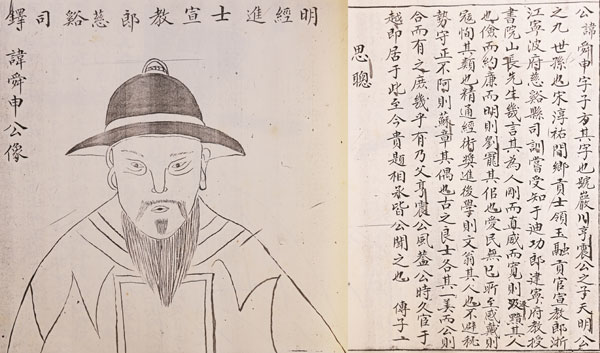 明經進士宣教郎慈谿司鐸
諱舜申公像
公諱舜申字子方其字也號巖川亨震公之子天明公
之九世孫也宋淳祐間鄉貢士領玉融貢官宣教郎浙
江寧波府慈谿縣司訓嘗受知于迪功郎建寧府教授
書院山長先生幾言其為人剛而直威而寬則汲黯其人
也儉而約廉而明則劉寵其侶也愛民無已所至感戴則
寇恂其類也精通經術獎進後學則文翁其人也不避
勢守正不阿則蘇章其偶也古之良士各具一美而公則
合而有之庶幾乎有乃父亨震公風蓋公時久官于
越即居于此至今貴題相承皆公開之也 傳子二
思聰